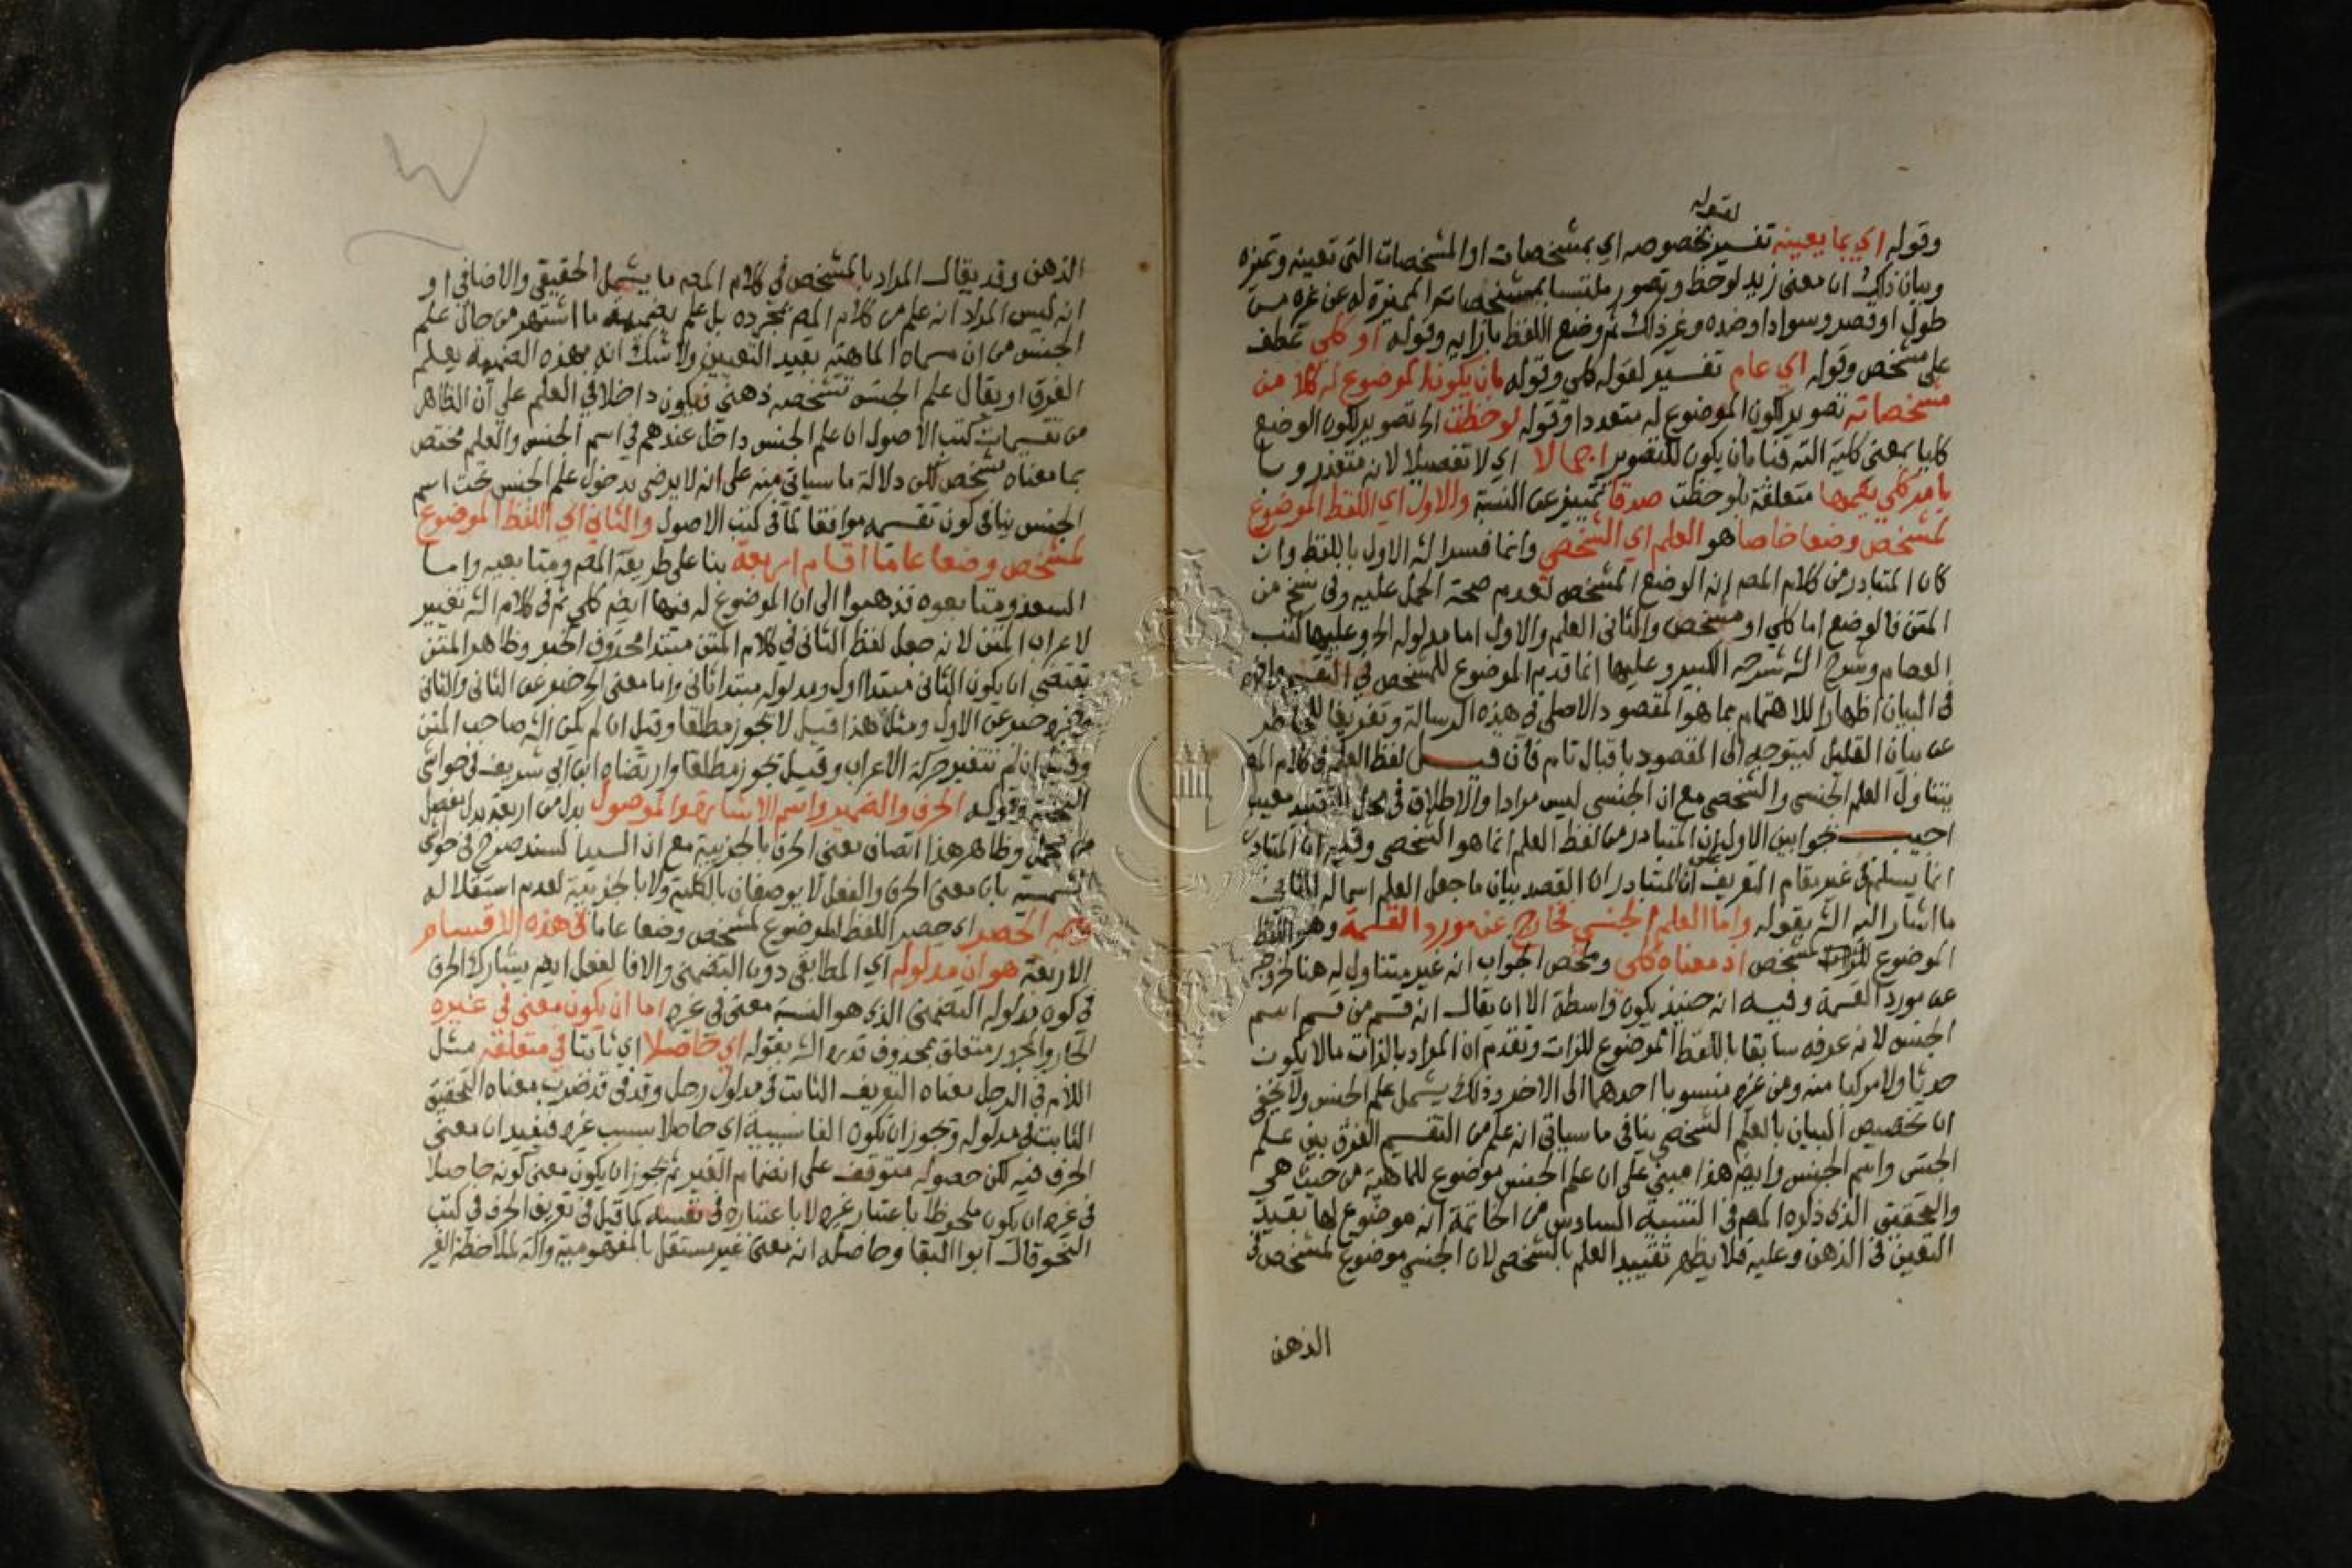 لقوله
وقوله اي بما يعينه تفسير بخصوصه اي بمشخصات او المشخصات التي تعينه وتميزه
وبيان ذلك ان معنى زيد لوحظ وتصور ملتبسا بمشخصاته المميزة له عن غيره من
طول او قصر وسواد او ضده وغير ذلك ثم وضع اللفظ بازايه وقوله او كلي عطف
على مشخص وقوله اي عام تفسير لقوله كلي وقوله بان يكون الموضوع له كلا من
مشخصاته تصوير لكون الموضوع له متعددا وقوله لوحظت الخ تصوير لكون الوضع
كليا بمعنى كلية آلته فيا بان يكون للتصوير اجمالا اي لا تفصيلا لانه متعذر و
بامر كلي يعمها متعلقة بلوحظت صدقا تمييز عن النسبة والاول اي اللفظ الموضوع
لمشخص وضعا خاصا هو العلم اي الشخصي وانما فسر الش الاول باللفظ وان
كان المتبادر من كلام المصـ انه الوضع المشخص لعدم صحة الحمل عليه وفي نسخ من
المتن فالوضع اما كلي او مشخص والثاني العلم والاول اما مدلوله الخ وعليها كتب
العصام وشرح الش شرحه الكبير وعليها انما قدم الموضوع للمشخص في التقسيم واخره
في البيان اظهارا للاهتمام بما هو المقصود الاصلي في هذه الرسالة وتفريغا للخاطر
عن بيان القليل ليتوجه الى المقصود باقبال تام فان قيل لفظ العلم في كلام المصـ
يتناول العلم الجنسي والشخصي مع ان الجنسي ليس مرادا والاطلاق في محل التقييد معيب
اجيب بجوابين الاول ان المتبادر من لفظ العلم انما هو الشخصي وفيه ان المتبادر
انما يسلم في غير مقام التعريف لان المتبادر ان القصد بيان ما جعل العلم اسما له الثاني
ما اشار اليه الش بقوله واما العلم الجنسي فخارج عن مورد القسمة وهو اللفظ
الموضوع لمشخص اذ معناه كلي ومحض الجواب انه غير متناول له هنا لخروجه
عن مورد القسمة وفيه انه حينئذ يكون واسطة الا ان يقال انه قسم من قسم اسم
الجنس لانه عرفه سابقا باللفظ الموضوع للذات وتقدم ان المراد بالذات ما لا يكون
حدثا ولا مركبا منه ومن غيره منسوبا احدهما الى الاخر وذلك يشمل علم الجنس ولا يخفى
ان تخصيص البيان بالعلم الشخصي ينافي ما سياتي انه علم من التقسيم الفرق بين علم
الجنس واسم الجنس وايضـ هذا مبني على ان علم الجنس موضوع للماهية من حيث هي
والتحقيق الذي ذكره المصـ في التنبيه السادس من الخاتمة انه موضوع لها بقيد
التعين في الذهن وعليه فلا يظهر تقييد العلم بالشخصي لان الجنسي موضوع لمشخص في
الذهن
الذهن وقد يقال المراد بالمشخص في كلام المصـ ما يشمل الحقيقي والاضافي او
انه ليس المراد انه علم من كلام المصـ بمجرده بل علم بضميمة ما اشتهر من حال علم
الجنس من ان مسماه الماهية بقيد التعيين ولا شك انه بهذه الضميمة يعلم
الفرق او يقال علم الجنس تشخصه ذهني فيكون داخلا في العلم على ان الظاهر
من تقسيمات كتب الاصول ان علم الجنس داخل عندهم في اسم الجنس والعلم مختص
بما معناه شخص لكن دلالة ما سياتي منه على انه لا يرضى بدخول علم الجنس تحت اسم
الجنس ينافي كون تقسيمه موافقا لما في كتب الاصول والثاني اي اللفظ الموضوع
لمشخص وضعا عاما اقسام اربعة بنا على طريقة المصـ ومتابعيه واما
السعد ومتابعوه فذهبوا الى ان الموضوع له فيها ايضـ كلي ثم في كلام الش تغيير
لاعراب المتن لانه جعل لفظ الثاني في كلام المتن مبتدا محذوف الخبر وظاهر المتن
يقتضي ان يكون الثاني مبتدا اول ومدلوله مبتدا ثاني واما معنى الخ خبر عن الثاني والثاني
وخبره خبر عن الاول ومثل هذا قيل لا يجوز مطلقا وقيل ان لم يكن الش صاحب المتن
وقيل ان لم تتغير حركة الاعراب وقيل يجوز مطلقا وارتضاه ابن ابي شريف في حواشي
وقوله الحرف والضمير واسم الاشارة والموصول بدل من اربعة بدل مفصل
من مجمل وظاهر هذا اتصاف معنى الحرف بالجزيية مع ان السيد السند صرح في حواشي
الشمسية بان معنى الحرف والفعل لا يوصفان بالكلية ولا بالجزيية لعدم استقلاله
وجه الحصر اي حصر اللفظ الموضوع لمشخص وضعا عاما في هذه الاقسام
الاربعة هو ان مدلوله اي المطابقي دون التضمني والا فالفعل ايضـ يشارك الحرف
في كون مدلوله التضمني الذي هو النسبة معنى في غيره اما ان يكون معنى في غيره
الجار والمجرور متعلق بمحذوف قدره الش بقوله اي حاصلا اي ثابتا في متعلقه مثل
اللام في الرجل معناه التعريف الثابت في مدلول رجل وقد في قد ضرب معناه التحقيق
الثابت في مدلوله وتجوز ان تكون الفا سببية اي حاصلا بسبب غيره فيفيد ان معنى
الحرف فيه لكن حصوله متوقف على انضمام الغير ثم يجوز ان يكون معنى كونه حاصلا
في غيره ان يكون ملحوظا باعتبار غيره لا باعتباره في نفسه كما قيل في تعريف الحرف في كتب
النحو قال ابو البقا وحاصله انه معنى غير مستقل بالمفهومية وآلة لملاحظة الغير